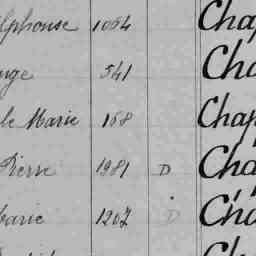 lphonse 1064 Chap
nge 541 Cha
le Marie 168 Chap
Pierre 1981 D Cha
Marie 1207 D Cha